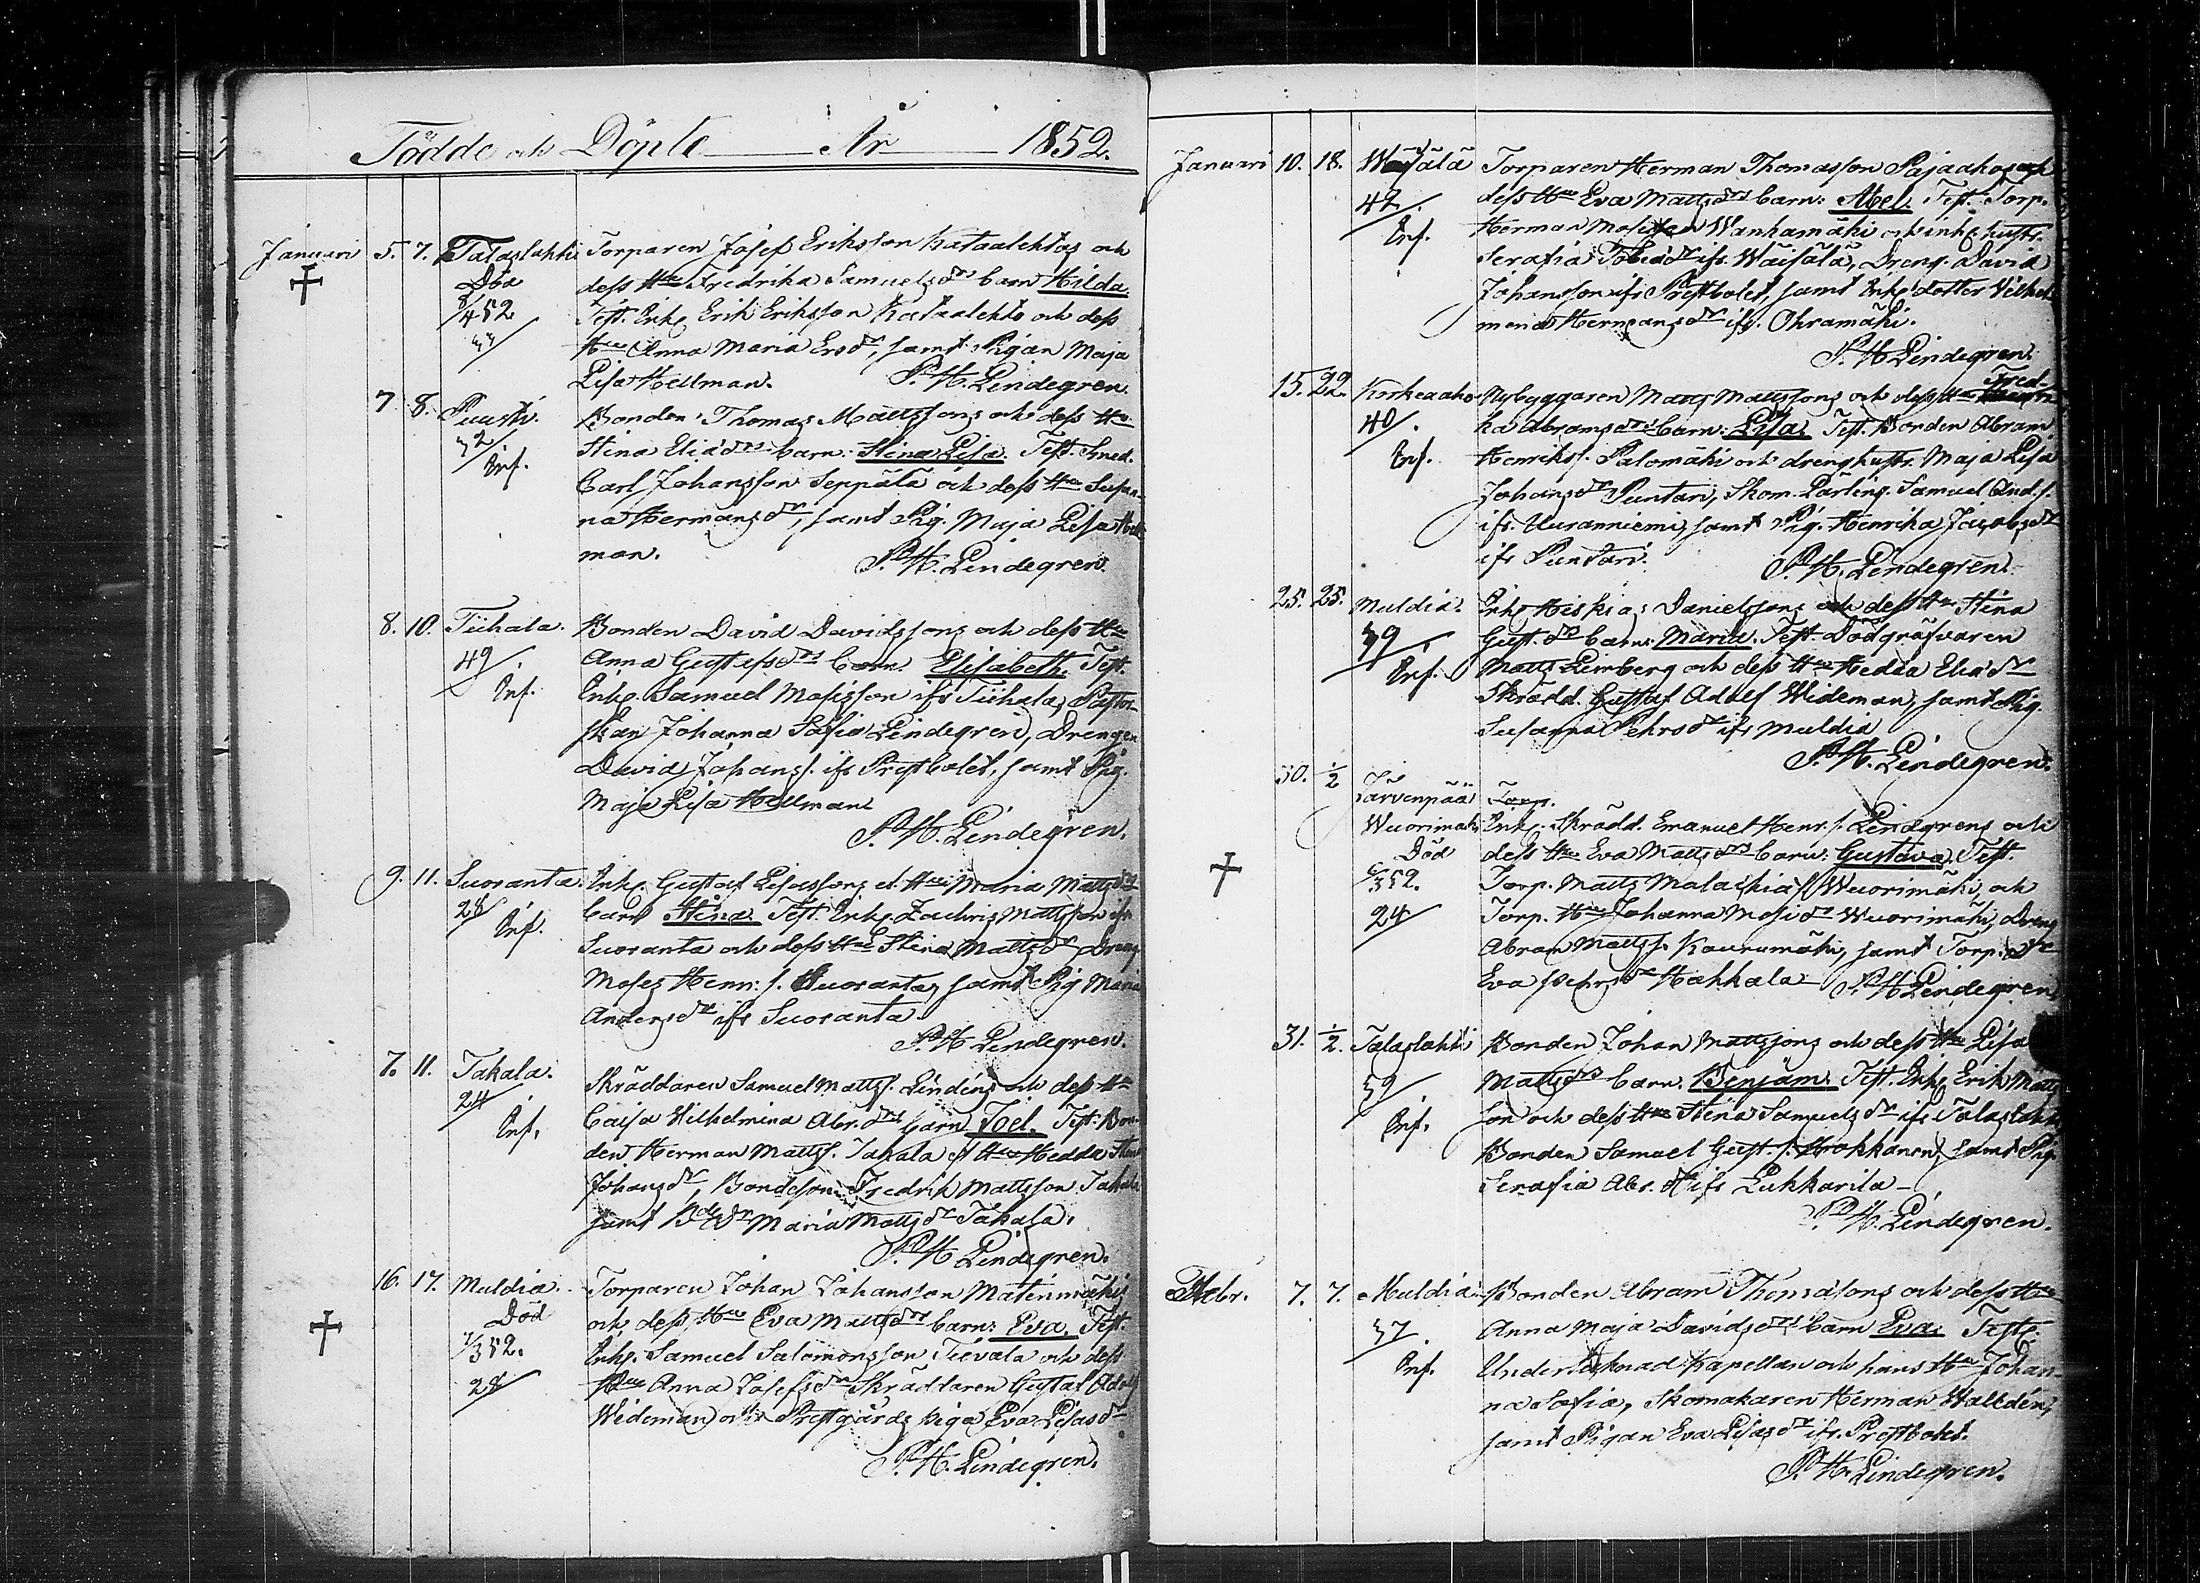 Födde och Döpte År 1852.
Januari 5. 7. Talaslahti Torparen Josef Eriksson Kataalehtos och
Död dess Hu Fredrika Samuelsdrs barn Hilda.
8/4 52 Test. Inhs Erik Eriksson Kataalehto och dess
33/ Hu Anna Maria Ersdr, samt Pigan Maja
Lisa Hellman. P. H. Lindegren.
7 8. Puusti. Bonden Thomas Mattssons och dess Hu
32/. Stina Eliædrs barn: Stina Lisa. Test. Smed.
Inf. Carl Johansson Seppälä och dess Hu Susan-
na Hermansdr, samt Pig. Maja Lisa Hell
man. P. H. Lindegren.
8. 10. Tiihala. Bonden David Davidssons och dess Hu
49/. Anna Gustafsdrs barn: Elisabeth. Test.
Inf. Inhs. Samuel Mosisson ifr Tiihala, Pastor-
skan Johanna Sofia Lindegren, Drengen
David Johanss. ifr Prestbolet, samt Pig.
Maja Lisa Hellman
P. H. Lindegren.
9. 11. Suoranta. Inhs Gustaf Lisassons et Hu Maria Mattsdrs
28/ barn Stina. Test. Inhs. Zachris Mattsson ifr
Inf. Suoranta och dess Hu Stina Mattsdr Dreng
Moses Henr. s. Suoranta, samt Pig Maria
Andersdr ifr Suoranta.
P. H. Lindegren.
7. 11. Takala. Skräddaren Samuel Mattss. Lindéns och dess Hu
24/ Caisa Wilhelmina Abr.drs barn Joel. Test: Bon-
Inf. den Herman Mattss. Takala et Hu Hedda
Johansdr, Bondeson Fredrik Mattsson Takala
samt Bdedr Maria Mattsdr Takala.
P. H. Lindegren.
16. 17. Muldia. Torparen Johan Johansson Mateinmäkis
Död och dess Hu Eva Mattsdrs barn: Eva. Test.
7/3 52. Inhs. Samuel Salomonsson Tievala och dess
28/ Hu Anna Josefsdr Skräddaren Gustaf Adolf
Wideman och Prestgårds piga Eva Lisasdr
P. H. Lindegren.
Januari 10. 18. Wäisälä Torparen Herman Thomasson Pajaahos och
42/. dess Hu Eva Mattsdrs barn: Abel. Test. Torp.
Inf. Herman Mosisson Wanhamäki och inhs hustr.
Serafia Tobiædr ifr. Wäisälä, Dreng. David
Johansson ifr Prestbolet, samt Inhs dotter Vilhel
mina Hermansdr ifr. Ohramäki.
P. H. Lindegren.
15. 22. Korkeaaho Nybyggaren Matts Mattssons och dess Hu Fred-
40/. ka Abramsdrs barn: Lisa. Test. Bonden Abram
Inf. Henrikss. Palomäki och drenghustr. Maja Lisa
Johansdr Puntari, Skom. Lärling. Samuel And. s.
ifr. Uuranniemi, samt Pig. Henrika Jacobsdr
ifr Puntari. P. H. Lindegren.
25. 25. Muldia. Inhs Hiskias Danielssons och dess Hu Stina
39/. Gust.drs barn: Maria. Test. Dödgräfvaren
Inf. Matts Limberg och dess Hu Hedda Eliædr
Skrädd. Gustaf Adolf Wideman, samt Pig.
Susanna Pehrsdr ifr Muldia
P. H. Lindegren.
30. 1/2 Järvenpää Torp.
Wuorimäki Inhs. Skrädd. Emanuel Henr. s. Lindgrens och
Död dess Hu Eva Mattsdrs barn: Gustava. Test.
6/3 52. Torp. Matts Malachias Wuorimäki, och
24/ Torp. Hu Johanna Mosisdr Wuorimäki, Dreng
Abram Mattss. Kaurumäki, samt Torp.
Eva Pehrsdr Hakkala P. H. Lindegren
31. 1/2. Talaslahti Bonden Johan Mattssons och dess Hu Lisa
39/ Mattsdrs barn. Benjam. Test. Inhs Erik Matts
Inf. son och dess Hu Stina Samuelsdr ifr Talaslahti
Bonden Samuel Gust. s. Hrokkanen, samt Pig.
Serafia Abr. d ifr Lukkarila
P. H. Lindegren.
Febr. 7. 7. Muldia Bonden Abram Thomassons och dess Hu
37. Anna Maja Davidsdrs barn Eva. Test.
Inf. Undertecknad Kapellan och hans Hu Johan-
na Sofia, Skomakaren Herman Walldén,
samt Pigan Eva Lisasdr ifr. Prestbolet.
P. H. Lindegren.